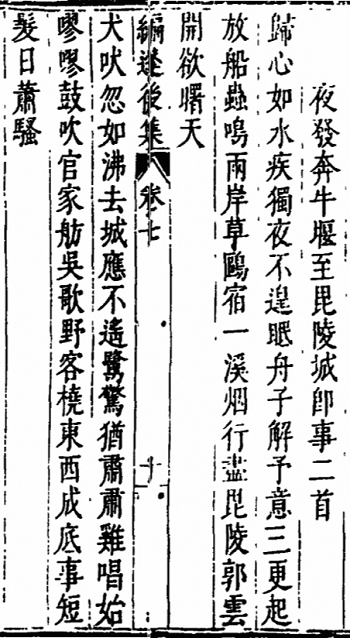 夜發奔牛堰至毘陵城卽事二首
歸心如水疾獨夜不遑眠舟子解予意三更起
放船蟲鳴兩岸草鷗宿一溪烟行盡毘陵郭雲
開欲曙天
編蓬後集 卷之七 十
犬吠忽如沸去城應不遙鷺驚猶肅肅雞唱始
嘐嘐鼓吹官家舫吳歌野客橈東西成底事短
髮日蕭騷